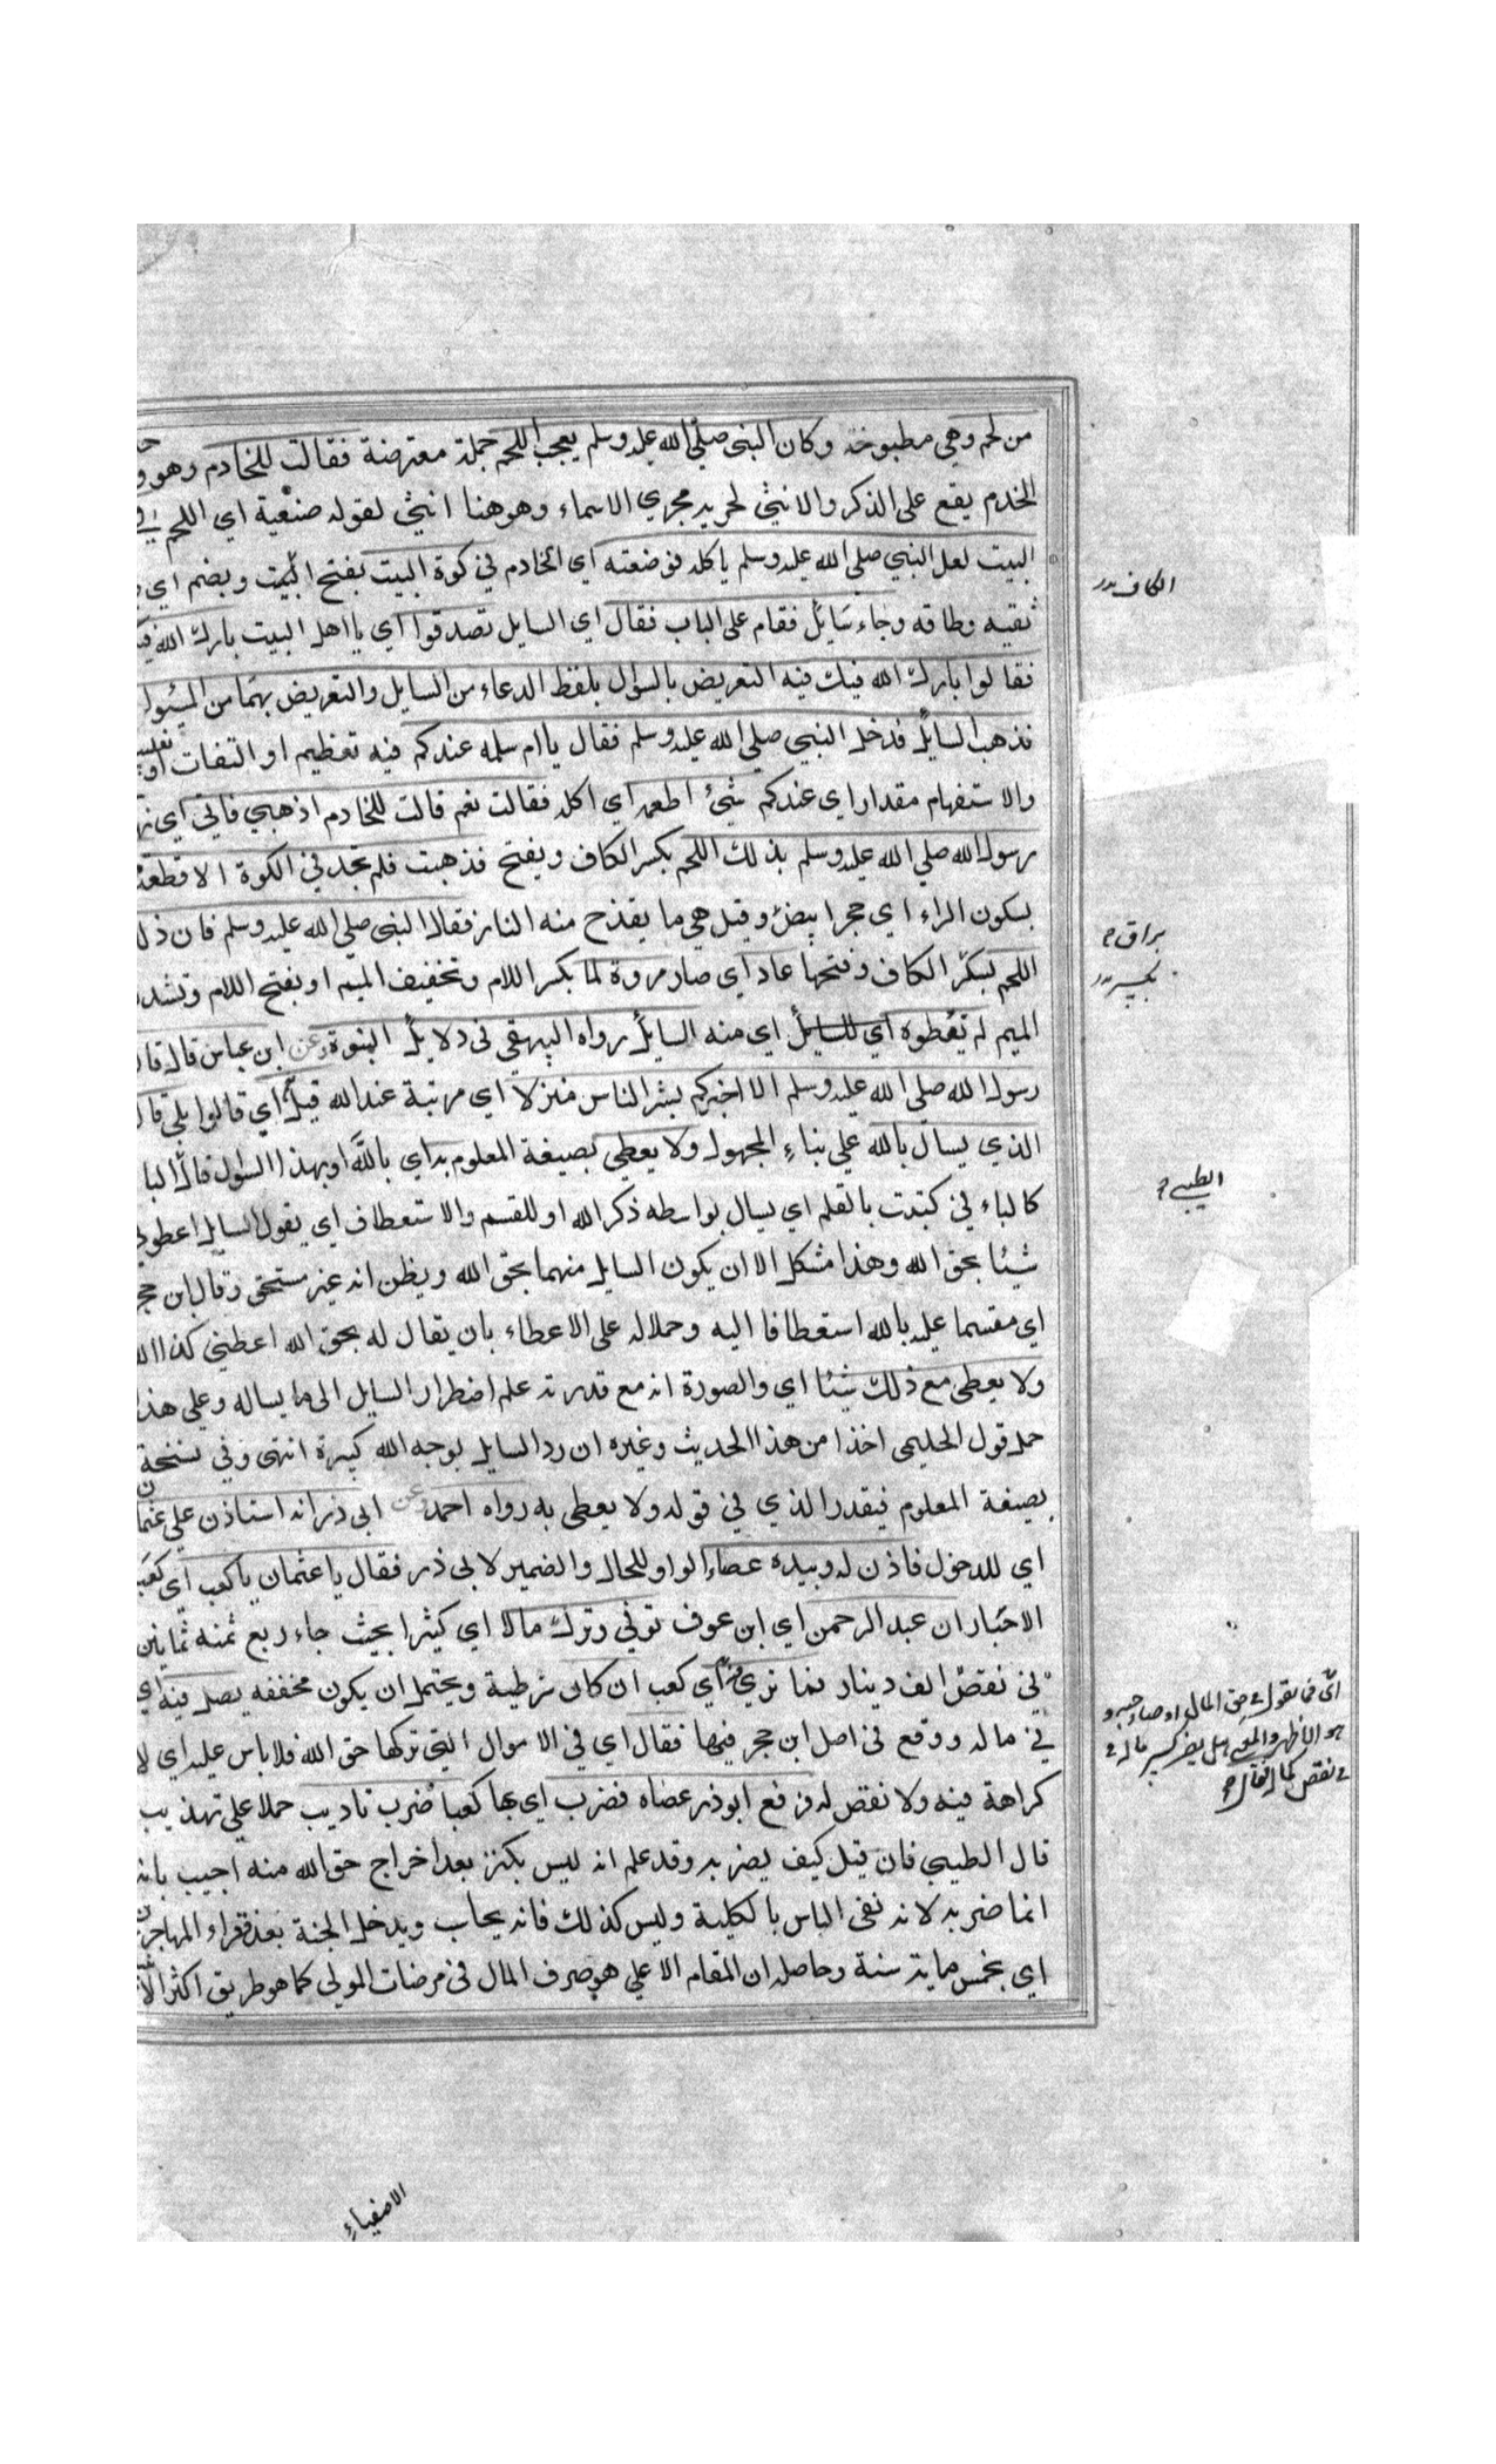 من لحم وهي مطبوخة وكان النبي صلى الله عليه وسلم يعجبه اللحم جملة معترضة فقالت للخادم وهو
الخدم يقع على الذكر والانثى لجريه مجري الاسماء وهو هنا انثى لقوله ضعيه اي اللحم في
البيت لعل النبي صلى الله عليه وسلم ياكله فوضعته اي الخادم في كوة البيت بفتح البيت ويضم اي
ثقبه وطاقه وجاء سائل فقام على الباب فقال اي السايل تصدقوا اي يا اهل البيت بارك الله
فقالوا بارك الله فيك فيه التعريض بالسؤال بلفظ الدعاء من السايل والتعريض بهما من المسئول
فذهب السايل فدخل النبي صلى الله عليه وسلم فقال يا ام سلمه عندكم فيه تعظيم او التفات او
والاستفهام مقدار اي عندكم شئ اطعمه اي اكله فقالت نعم قالت للخادم اذهبي فاتي اي
رسول الله صلي الله عليه وسلم بذلك اللحم بكسر الكاف ويفتح فذهبت فلم تجد في الكوة الا قطعة
بسكون الراء اي حجر ابيض وقيل هي ما يقدح منه النار فقال النبي صلي الله عليه وسلم فان ذل
اللحم بسكر الكاف وفتحها عاد اي صار مروة لما بكسر اللام وتخفيف الميم او بفتح اللام وتشد
الميم لم تعطوه اي للسايل اي منه السايل رواه البيهقي في دلايل النبوة وعن ابن عباس قال قا
رسول الله صلى الله عليه وسلم الا اخبركم بشر الناس منزلا اي مرتبة عند الله قيل اي قالوا بلي قا
الذي يسال بالله علي بناء المجهول ولا يعطي بصيغة المعلوم به اي بالله او بهذا السؤل قال البا
كالباء في كتبت بالقلم اي يسال بواسطه ذكر الله او للقسم والاستعطاف اي يقول السايل اعطوني
شيئا بحق الله وهذا مشكل الا ان يكون السايل متهما بحق الله ويظن انه غير مستحق وقال ابن حجر
اي مقسما عليه بالله استعطافا اليه وحملا له على الاعطاء بان يقال له بحق الله اعطني كذا
ولا يعطى مع ذلك شيئا اي والصورة انه مع قدرته علم اضطرار السايل الى ما يساله وعلى هذا
حمل قول الحليمي اخذا من هذا الحديث وغيره ان رد السايل بوجه الله كبيرة انتهى وفي نسخة
بصيغة المعلوم فيقدر الذي في قوله ولا يعطى به رواه احمد وعن ابي ذر انه استاذن علي عثمان
اي للدخول فاذن له وبيده عصاه الواو للحال والضمير لابي ذر فقال يا عثمان يا كعب اي كعب
الاحبار ان عبد الرحمن اي ابن عوف توفي وترك مالا اي كثيرا بحيث جاء ربع ثمنه ثمانين
الف دينار فما تري فيه اي كعب ان كان شرطية ويحتمل ان يكون مخففه يصل فيه اي
في ماله ووقع في اصل ابن حجر فيها فقال اي في الاموال التي تركها حق الله فلا باس عليه اي لا
كراهة فيه ولا نقص له فرفع ابوذر عصاه فضرب اي بها كعبا ضرب تاديب حملا علي تهذيب
قال الطيبي فان قيل كيف يضربه وقد علم انه ليس بكنز بعد اخراج حق الله منه اجيب بانه
انما ضربه لانه نفى الباس بالكلية وليس كذلك فانه يحاسب ويدخل الجنة بعد فقراء المهاجرين
اي بخمس ماية سنة وحاصله ان المقام الاعلي هو صرف المال في مرضات المولي كما هو طريق اكثر
الكاف
براق
بكسر
الطيبي
الاصفياء